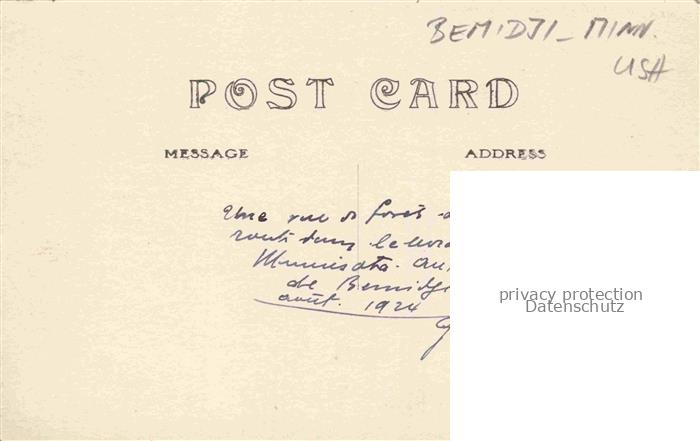 BEMIDJI - MINN.
USA
POST CARD
MESSAGE ADDRESS
Une vue de forêt
route dans le nord
Minnesota.
de Bemidj
août. 1924
privacy protection
Datenschutz